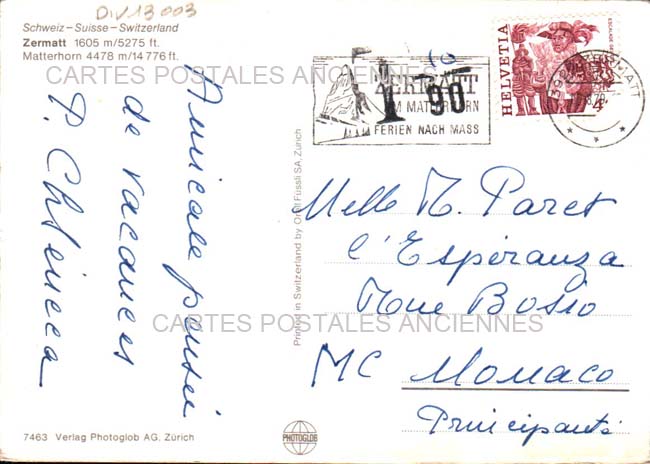 DIV 13 003
Schweiz – Suisse – Switzerland
Zermatt 1605 m/5275 ft.
Matterhorn 4478 m/14 776 ft.
CARTES POSTALES ANCIENNES
Amicale pensée
de vacances
P.
10
T 90
ZERMATT
AM MATTERHORN
FERIEN NACH MASS
HELVETIA
ZERMATT
Melle M. Paret
l'Espéranza
Rue Bosio
MC Monaco
Principauté
CARTES POSTALES ANCIENNES
Printed in Switzerland by Orell Füssli SA, Zürich
7463 Verlag Photoglob AG. Zürich
PHOTOGLOB